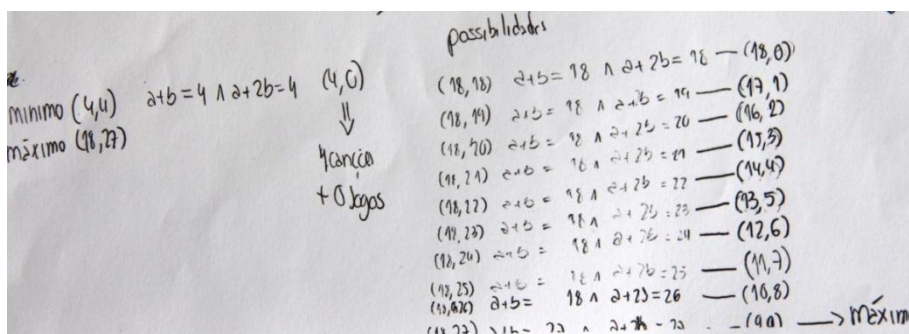 mínimo (4,4) a+b=4 ∧ a+2b=4 (4,0)
máximo (18,27)
⇓
4 canções
+ 0 jogos
possibilidades
(18,18) a+b=18 ∧ a+2b=18 — (18,0)
(18,19) a+b=18 ∧ a+2b=19 — (17,1)
(18,20) a+b=18 ∧ a+2b=20 — (16,2)
(18,21) a+b=18 ∧ a+2b=21 — (15,3)
(18,22) a+b=18 ∧ a+2b=22 — (14,4)
(18,23) a+b=18 ∧ a+2b=23 — (13,5)
(18,24) a+b=18 ∧ a+2b=24 — (12,6)
(18,25) a+b=18 ∧ a+2b=25 — (11,7)
(18,26) a+b=18 ∧ a+2b=26 — (10,8)
(18,27) (9,9) → máximo